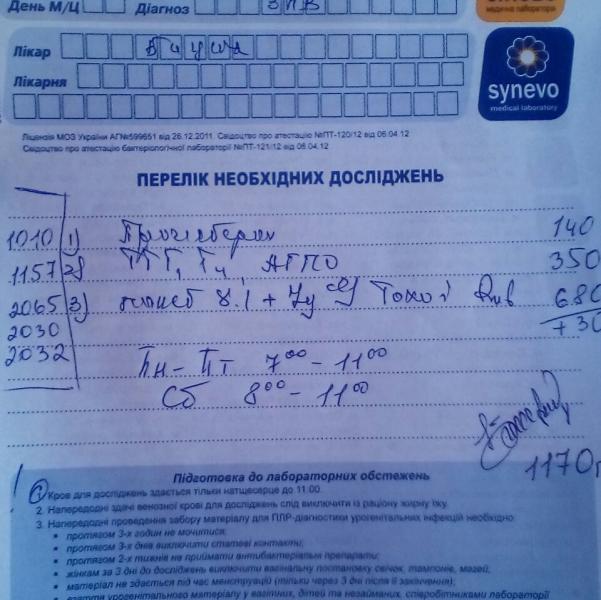 День М/Ц Діагноз ЗПВ
медична лабораторія
Лікар
Лікарня
synevo
medical laboratory
Ліцензія МОЗ України АГ№599651 від 26.12.2011. Свідоцтво про атестацію №ПТ-120/12 від 06.04.12
Свідоцтво про атестацію бактеріологічної лабораторії №ПТ-121/12 від 06.04.12
ПЕРЕЛІК НЕОБХІДНИХ ДОСЛІДЖЕНЬ
1010 1) 140
1157 2) ТТГ, Т4, АТПО 350
2065 3) 680
2030 +30
2032 Пн - Пт 7⁰⁰ - 11⁰⁰
Сб 8⁰⁰ - 11⁰⁰
1170
! Підготовка до лабораторних обстежень
1. Кров для досліджень здається тільки натщесерце до 11.00.
2. Напередодні здачі венозної крові для досліджень слід виключити із раціону жирну їжу.
3. Напередодні проведення забору матеріалу для ПЛР-діагностики урогенітальних інфекцій необхідно:
• протягом 3-х годин не мочитися;
• протягом 3-х днів виключити статеві контакти;
• протягом 2-х тижнів не приймати антибактеріальні препарати;
• жінкам за 3 дні до досліджень виключити вагінальну постановку свічок, тампонів, мазей;
• матеріал не здається під час менструацій (тільки через 3 дні після її закінчення);
• взяття урогенітального матеріалу у вагітних, дітей та незайманих, співробітниками лабораторії